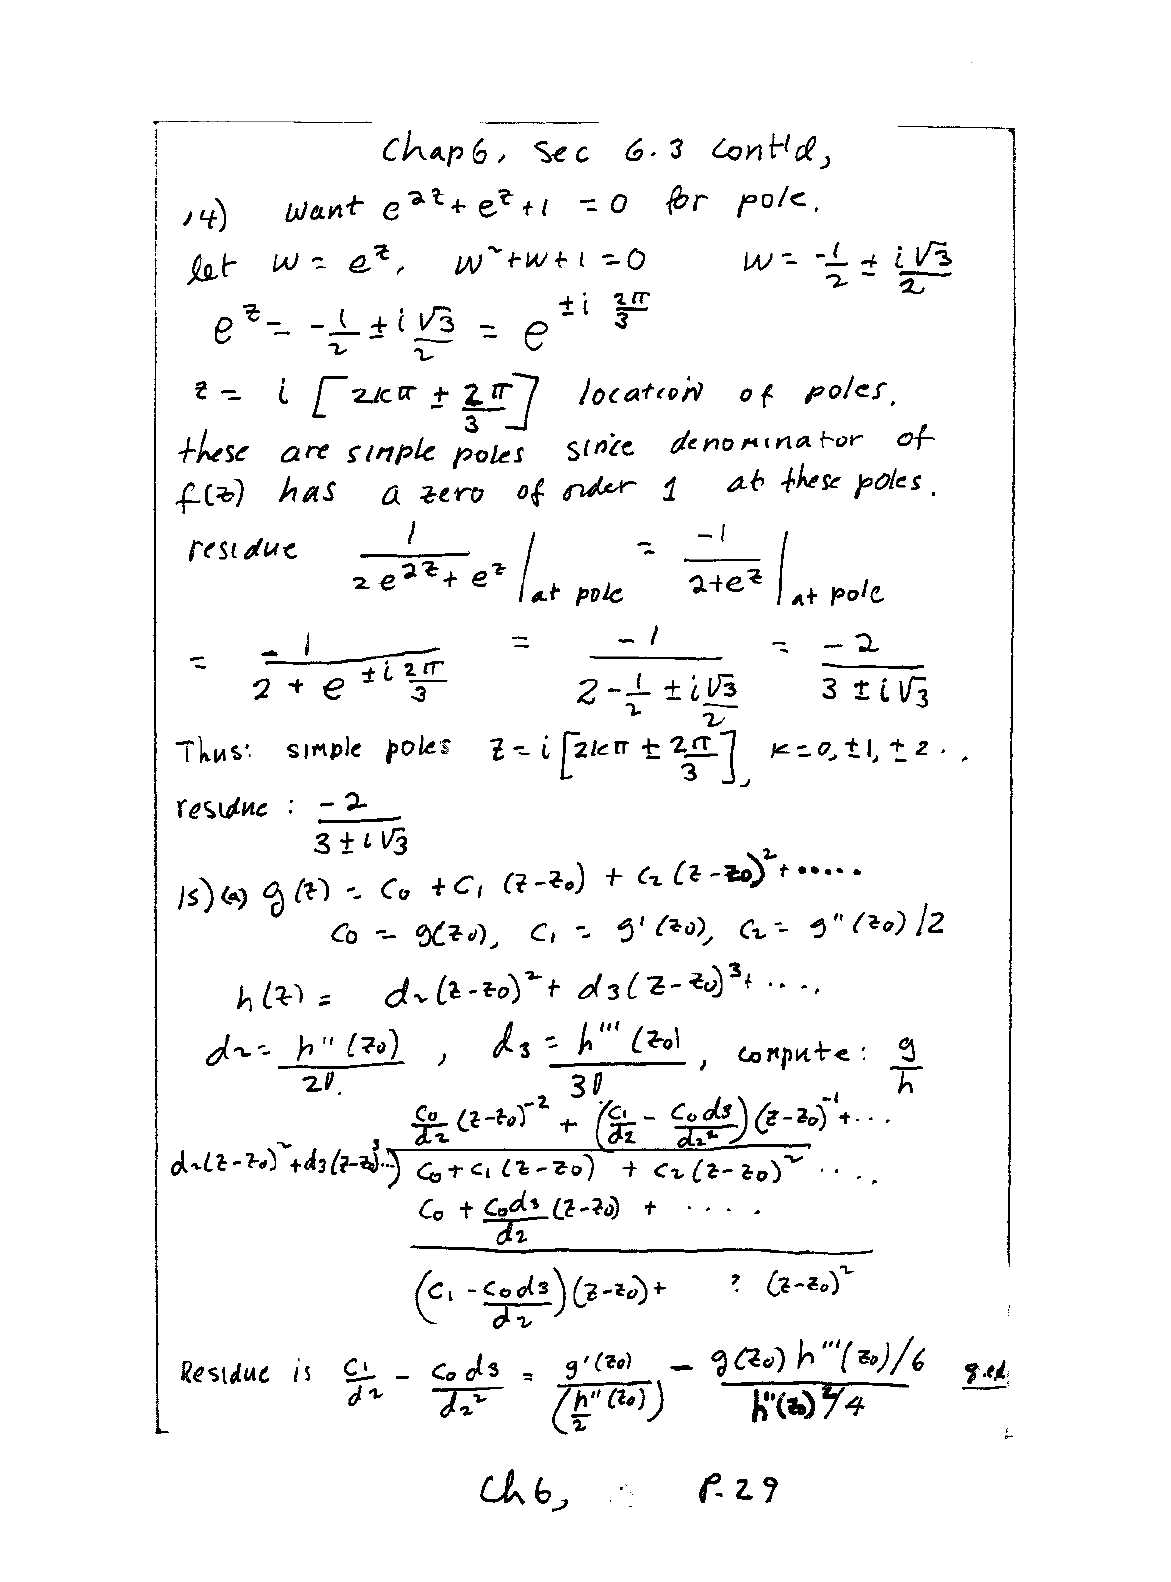 Chap 6, Sec 6.3 cont'd,
14) Want e^{2z} + e^z + 1 = 0 for pole.
let w = e^z, w² + w + 1 = 0 w = -1/2 ± i√3/2
e^z = -1/2 ± i√3/2 = e^{±i 2π/3}
z = i [2kπ ± 2π/3] location of poles.
these are simple poles since denominator of
f(z) has a zero of order 1 at these poles.
residue 1/(2e^{2z} + e^z) | at pole = -1/(2+e^z) | at pole
= -1/(2 + e^{±i 2π/3}) = -1/(2 - 1/2 ± i√3/2) = -2/(3 ± i√3)
Thus: simple poles z = i [2kπ ± 2π/3], k = 0, ±1, ±2 . .
residue : -2/(3 ± i√3)
15) (a) g(z) = c₀ + c₁ (z-z₀) + c₂ (z-z₀)² + .....
c₀ = g(z₀), c₁ = g'(z₀), c₂ = g''(z₀)/2
h(z) = d₂(z-z₀)² + d₃(z-z₀)³ + ....
d₂ = h''(z₀)/2!, d₃ = h'''(z₀)/3!, compute: g/h
c₀/d₂ (z-z₀)^{-2} + (c₁/d₂ - c₀d₃/d₂²)(z-z₀)^{-1} + ...
d₂(z-z₀)² + d₃(z-z₀)³...) c₀ + c₁(z-z₀) + c₂(z-z₀)² ....
c₀ + c₀d₃/d₂ (z-z₀) + ....
(c₁ - c₀d₃/d₂)(z-z₀) + ? (z-z₀)²
Residue is c₁/d₂ - c₀d₃/d₂² = g'(z₀)/(h''(z₀)/2) - g(z₀)h'''(z₀)/6 / h''(z₀)²/4 q.e.d.
Ch 6, P. 29